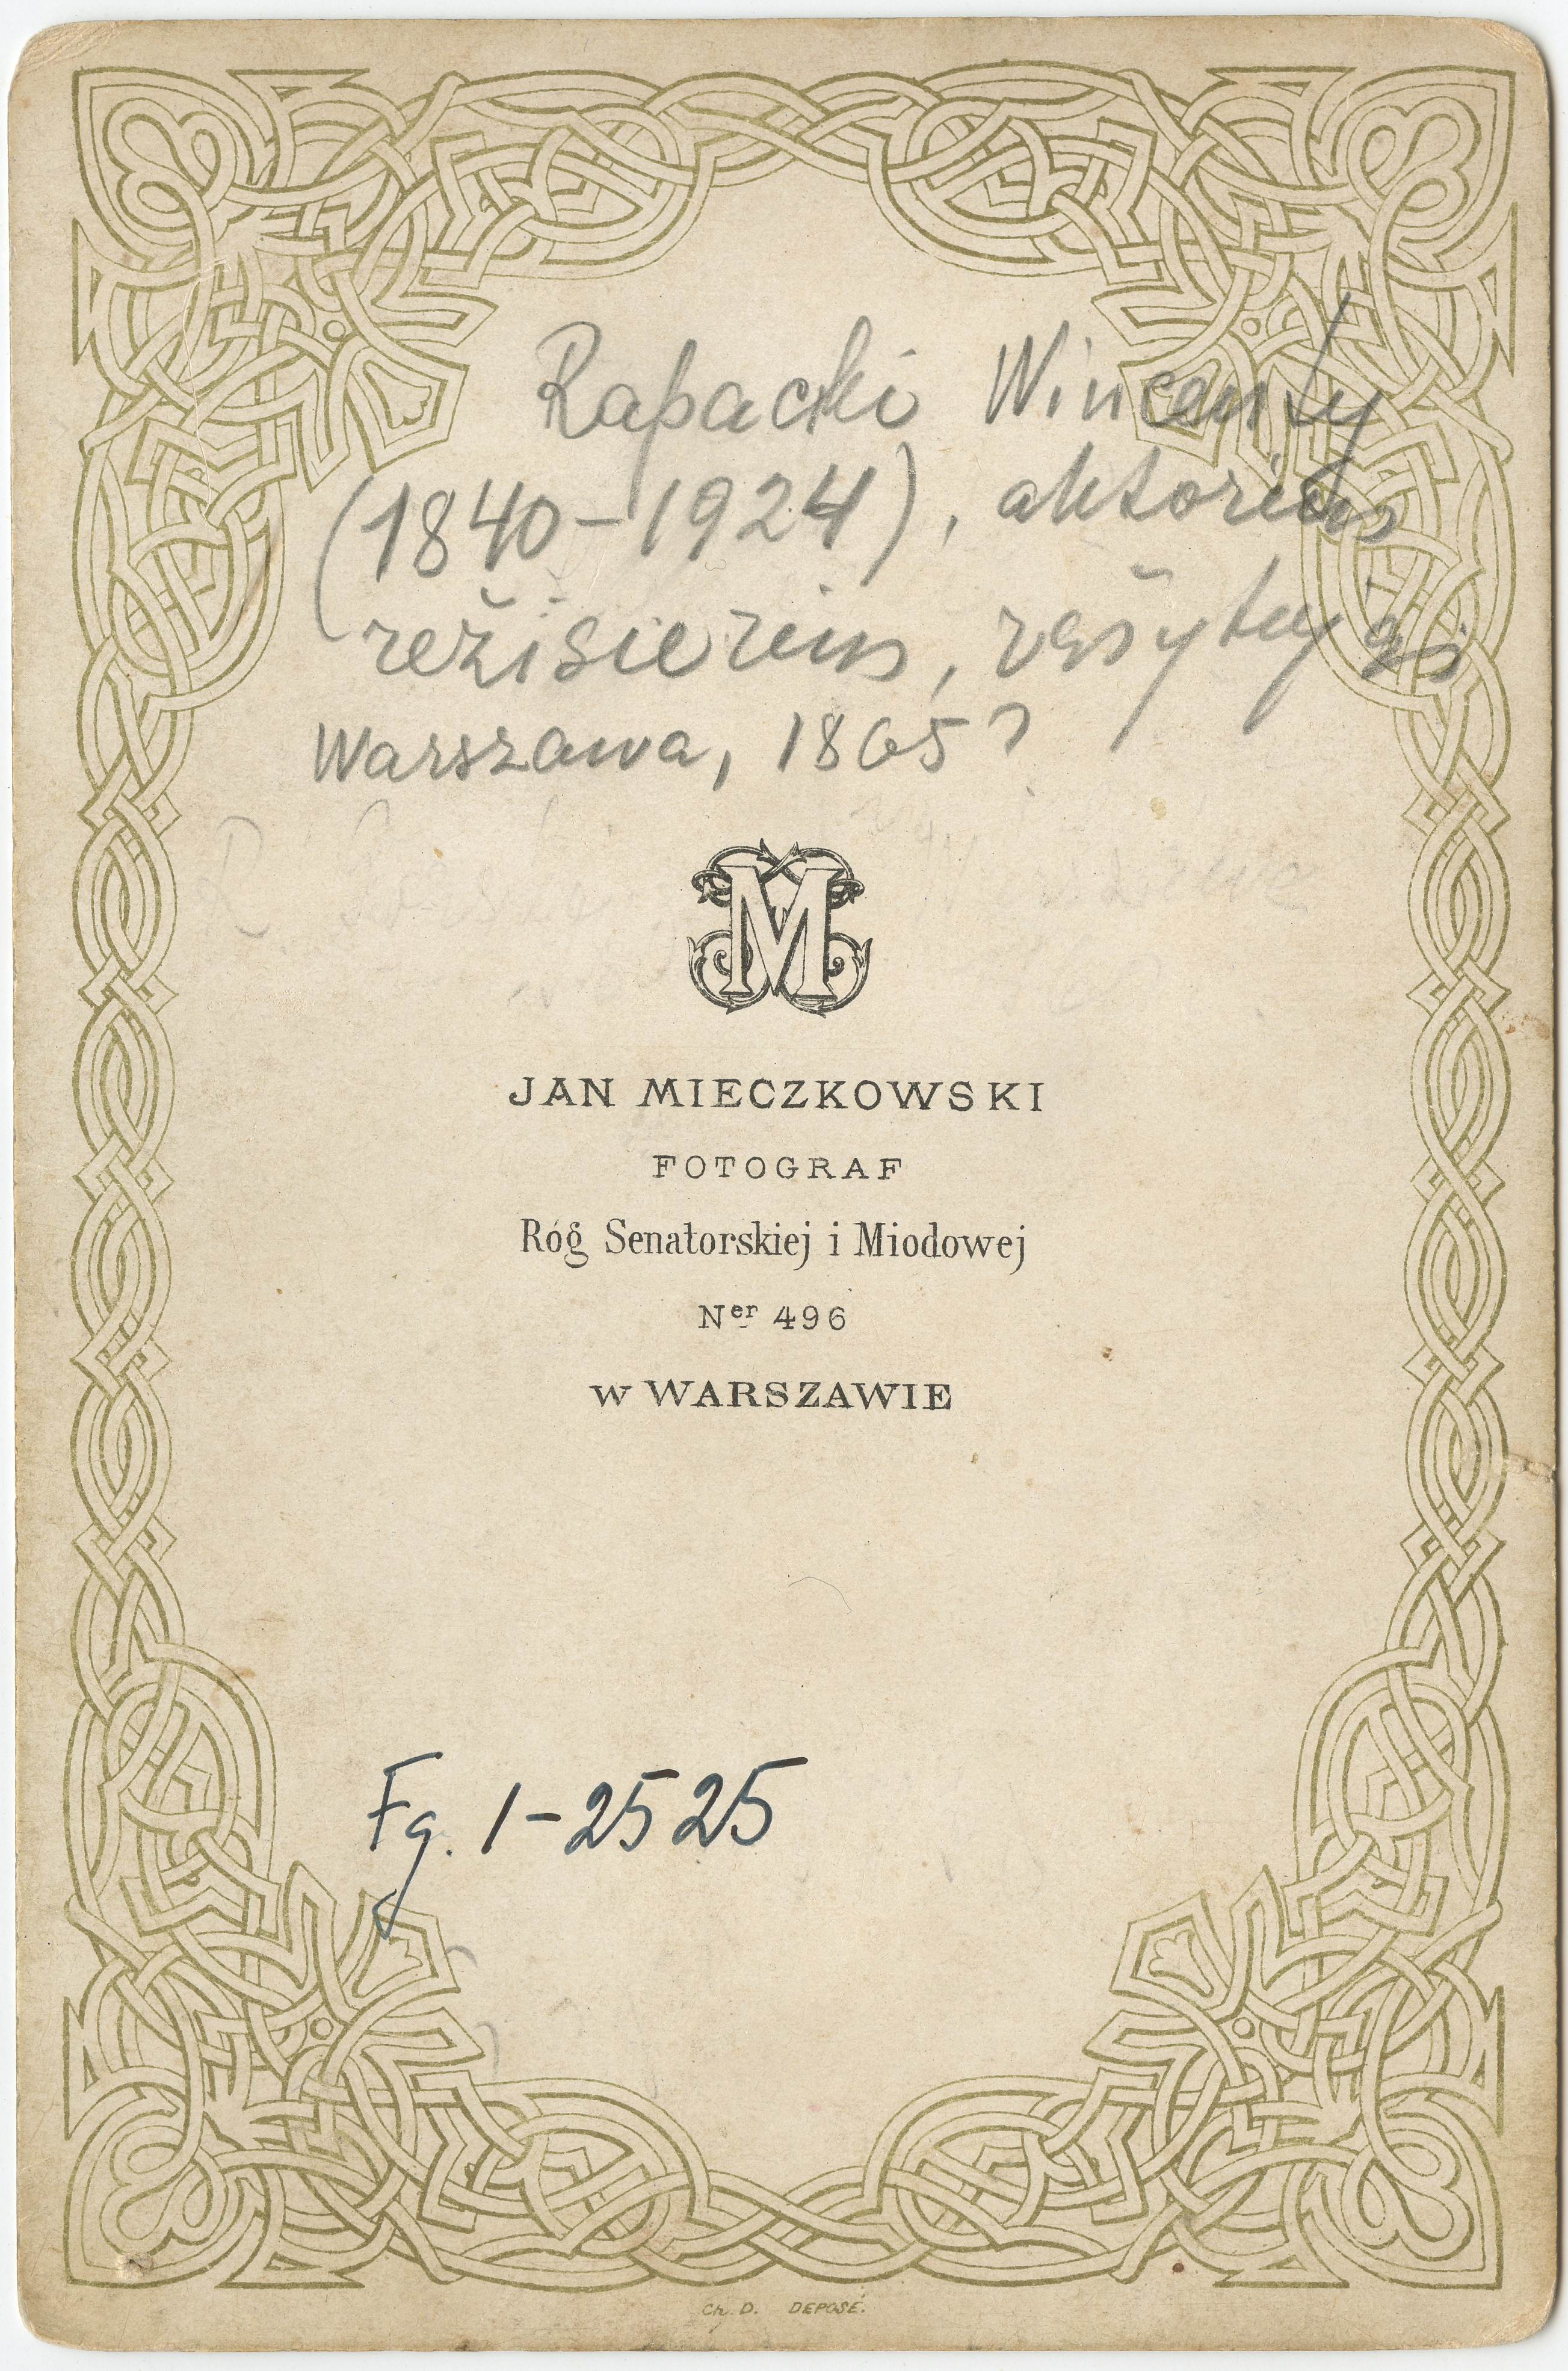 Rapacki Wincenty
(1840-1924), aktorius
režisierius, rašytojas
Warszawa, 1865?
M
JAN MIECZKOWSKI
FOTOGRAF
Róg Senatorskiej i Miodowej
Ner 496
w WARSZAWIE
Fg. 1-2525
Ch. D. DEPOSÉ.